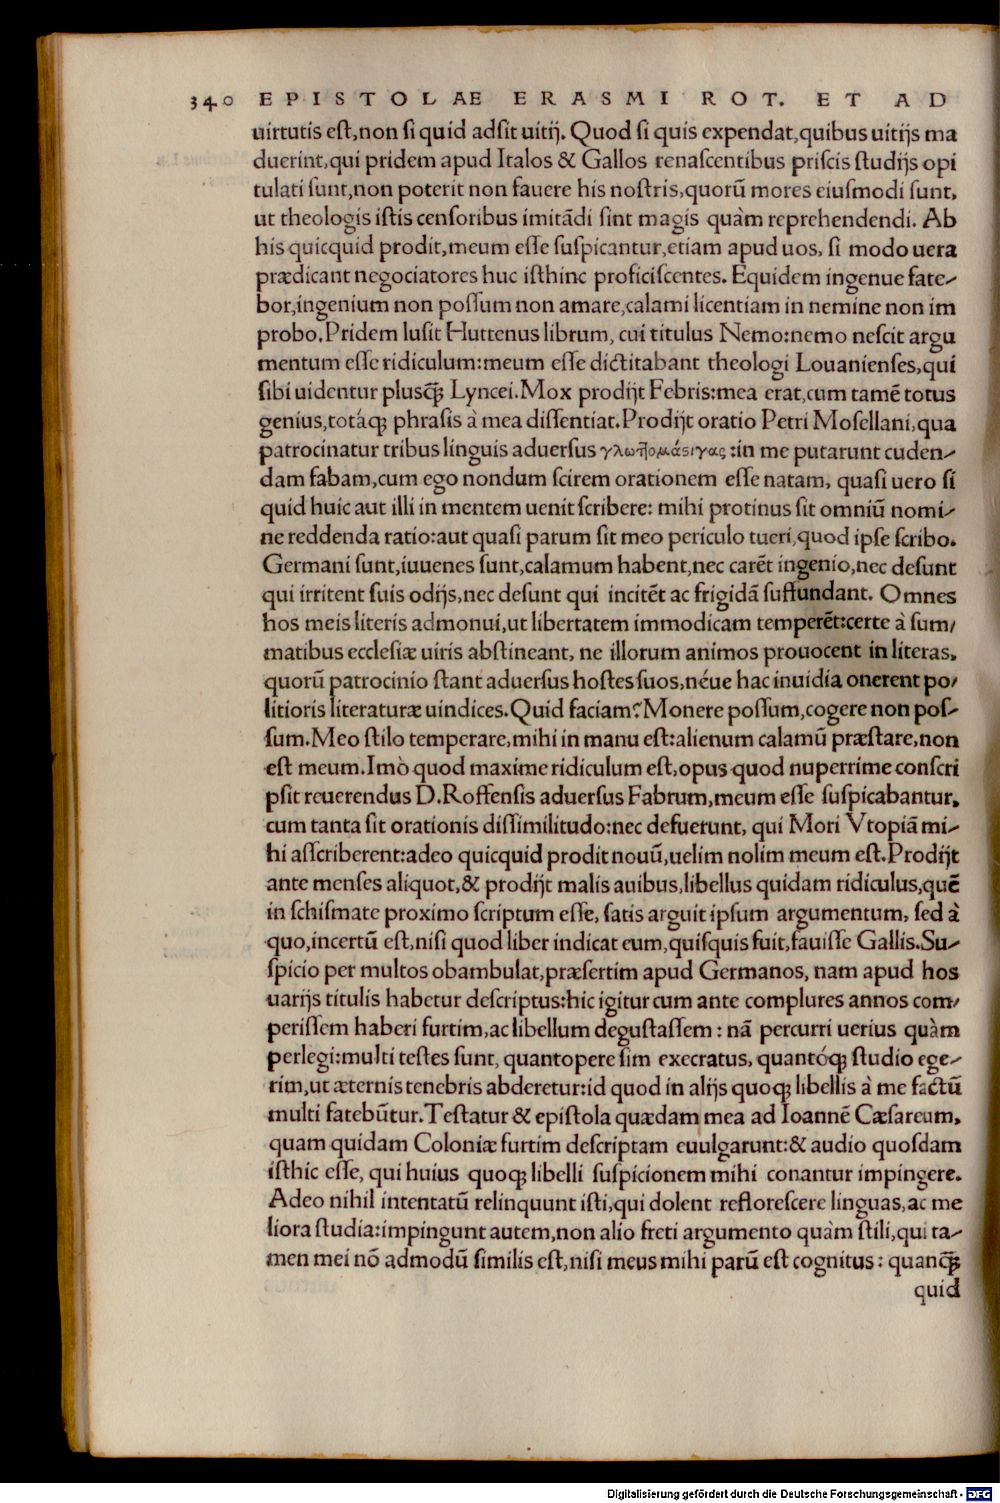 340 EPISTOLAE ERASMI ROT. ET AD
uirtutis est,non si quid adsit uitij. Quod si quis expendat,quibus uitijs ma
duerint,qui pridem apud Italos & Gallos renascentibus priscis studijs opi
tulati sunt,non poterit non fauere his nostris,quorū mores eiusmodi sunt,
ut theologis istis censoribus imitādi sint magis quàm reprehendendi. Ab
his quicquid prodit,meum esse suspicantur,etiam apud uos, si modo uera
prædicant negociatores huc isthinc proficiscentes. Equidem ingenue fate-
bor,ingenium non possum non amare,calami licentiam in nemine non im
probo. Pridem lusit Huttenus librum, cui titulus Nemo:nemo nescit argu
mentum esse ridiculum:meum esse dictitabant theologi Louanienses,qui
sibi uidentur plusꝗ̃ Lyncei. Mox prodijt Febris:mea erat,cum tamē totus
genius,totáꝗ phrasis à mea dissentiat. Prodijt oratio Petri Mosellani,qua
patrocinatur tribus linguis aduersus γλωττομάστιγας :in me putarunt cuden-
dam fabam,cum ego nondum scirem orationem esse natam, quasi uero si
quid huic aut illi in mentem uenit scribere: mihi protinus sit omniū nomi-
ne reddenda ratio:aut quasi parum sit meo periculo tueri,quod ipse scribo.
Germani sunt,iuuenes sunt,calamum habent,nec carēt ingenio,nec desunt
qui irritent suis odijs,nec desunt qui incitēt ac frigidā suffundant. Omnes
hos meis literis admonui,ut libertatem immodicam temperēt:certe à sum-
matibus ecclesiæ uiris abstineant, ne illorum animos prouocent in literas,
quorū patrocinio stant aduersus hostes suos,néue hac inuidia onerent po-
litioris literaturæ uindices. Quid faciam? Monere possum,cogere non pos-
sum. Meo stilo temperare,mihi in manu est:alienum calamū præstare,non
est meum. Imò quod maxime ridiculum est,opus quod nuperrime conscri
psit reuerendus D. Roffensis aduersus Fabrum,meum esse suspicabantur,
cum tanta sit orationis dissimilitudo:nec defuerunt, qui Mori Vtopiā mi-
hi asscriberent:adeo quicquid prodit nouū,uelim nolim meum est. Prodijt
ante menses aliquot,& prodijt malis auibus,libellus quidam ridiculus,quē
in schismate proximo scriptum esse, satis arguit ipsum argumentum, sed à
quo,incertū est,nisi quod liber indicat eum,quisquis fuit,fauisse Gallis. Su-
spicio per multos obambulat,præsertim apud Germanos, nam apud hos
uarijs titulis habetur descriptus:hic igitur cum ante complures annos com-
perissem haberi furtim,ac libellum degustassem : nā percurri uerius quàm
perlegi:multi testes sunt, quantopere sim execratus, quantóꝗ studio ege-
rim,ut æternis tenebris abderetur:id quod in alijs quoꝗ libellis à me factū
multi fatebūtur. Testatur & epistola quædam mea ad Ioannē Cæsareum,
quam quidam Coloniæ furtim descriptam euulgarunt:& audio quosdam
isthic esse, qui huius quoꝗ libelli suspicionem mihi conantur impingere.
Adeo nihil intentatū relinquunt isti,qui dolent reflorescere linguas,ac me
liora studia:impingunt autem,non alio freti argumento quàm stili,qui ta-
men mei nō admodū similis est,nisi meus mihi parū est cognitus : quanꝗ̃
quid
Digitalisierung gefördert durch die Deutsche Forschungsgemeinschaft - DFG